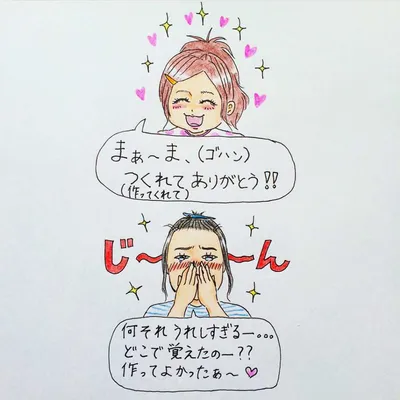 まぁ〜ま、(ゴハン)
つくれて ありがとう!!
(作ってくれて)
じ〜〜ん
何それ うれしすぎるー...
どこで 覚えたのー??
作ってよかったぁ〜♡